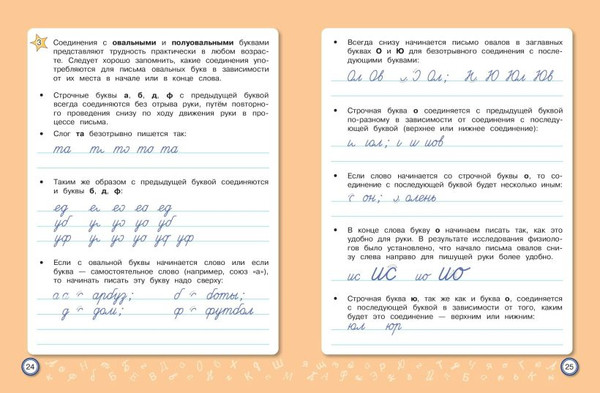 3 Соединения с овальными и полуовальными буквами
представляют трудность практически в любом возрас-
те. Следует хорошо запомнить, какие соединения упо-
требляются для письма овальных букв в зависимости
от их места в начале или в конце слова.
• Строчные буквы а, б, д, ф с предыдущей буквой
всегда соединяются без отрыва руки, путём повторно-
го проведения снизу по ходу движения руки в про-
цессе письма.
• Слог та безотрывно пишется так:
та т то то та
• Таким же образом с предыдущей буквой соединяются
и буквы б, д, ф:
ед ег ео еа ед
уб у уо уо уб
уф у уо уо уф уф
• Если с овальной буквы начинается слово или если
буква — самостоятельное слово (например, союз «а»),
то начинать писать эту букву надо сверху:
а с арбуз; б боты;
д дом; ф футбол
24
• Всегда снизу начинается письмо овалов в заглавных
буквах О и Ю для безотрывного соединения с после-
дующими буквами:
Ол Ов Ол; Ю Юл Юв
• Строчная буква о соединяется с предыдущей буквой
по-разному в зависимости от соединения с последу-
ющей буквой (верхнее или нижнее соединение):
и иол; и и иов
• Если слово начинается со строчной буквы о, то со-
единение с последующей буквой будет несколько иным:
он; олень
• В конце слова букву о начинаем писать так, как это
удобно для руки. В результате исследования физиоло-
гов было установлено, что начало письма овалов сни-
зу слева направо для пишущей руки более удобно.
ис ис ио ио
• Строчная буква ю, так же как и буква о, соединяется
с последующей буквой в зависимости от того, каким
будет это соединение — верхним или нижним:
юл юр
25